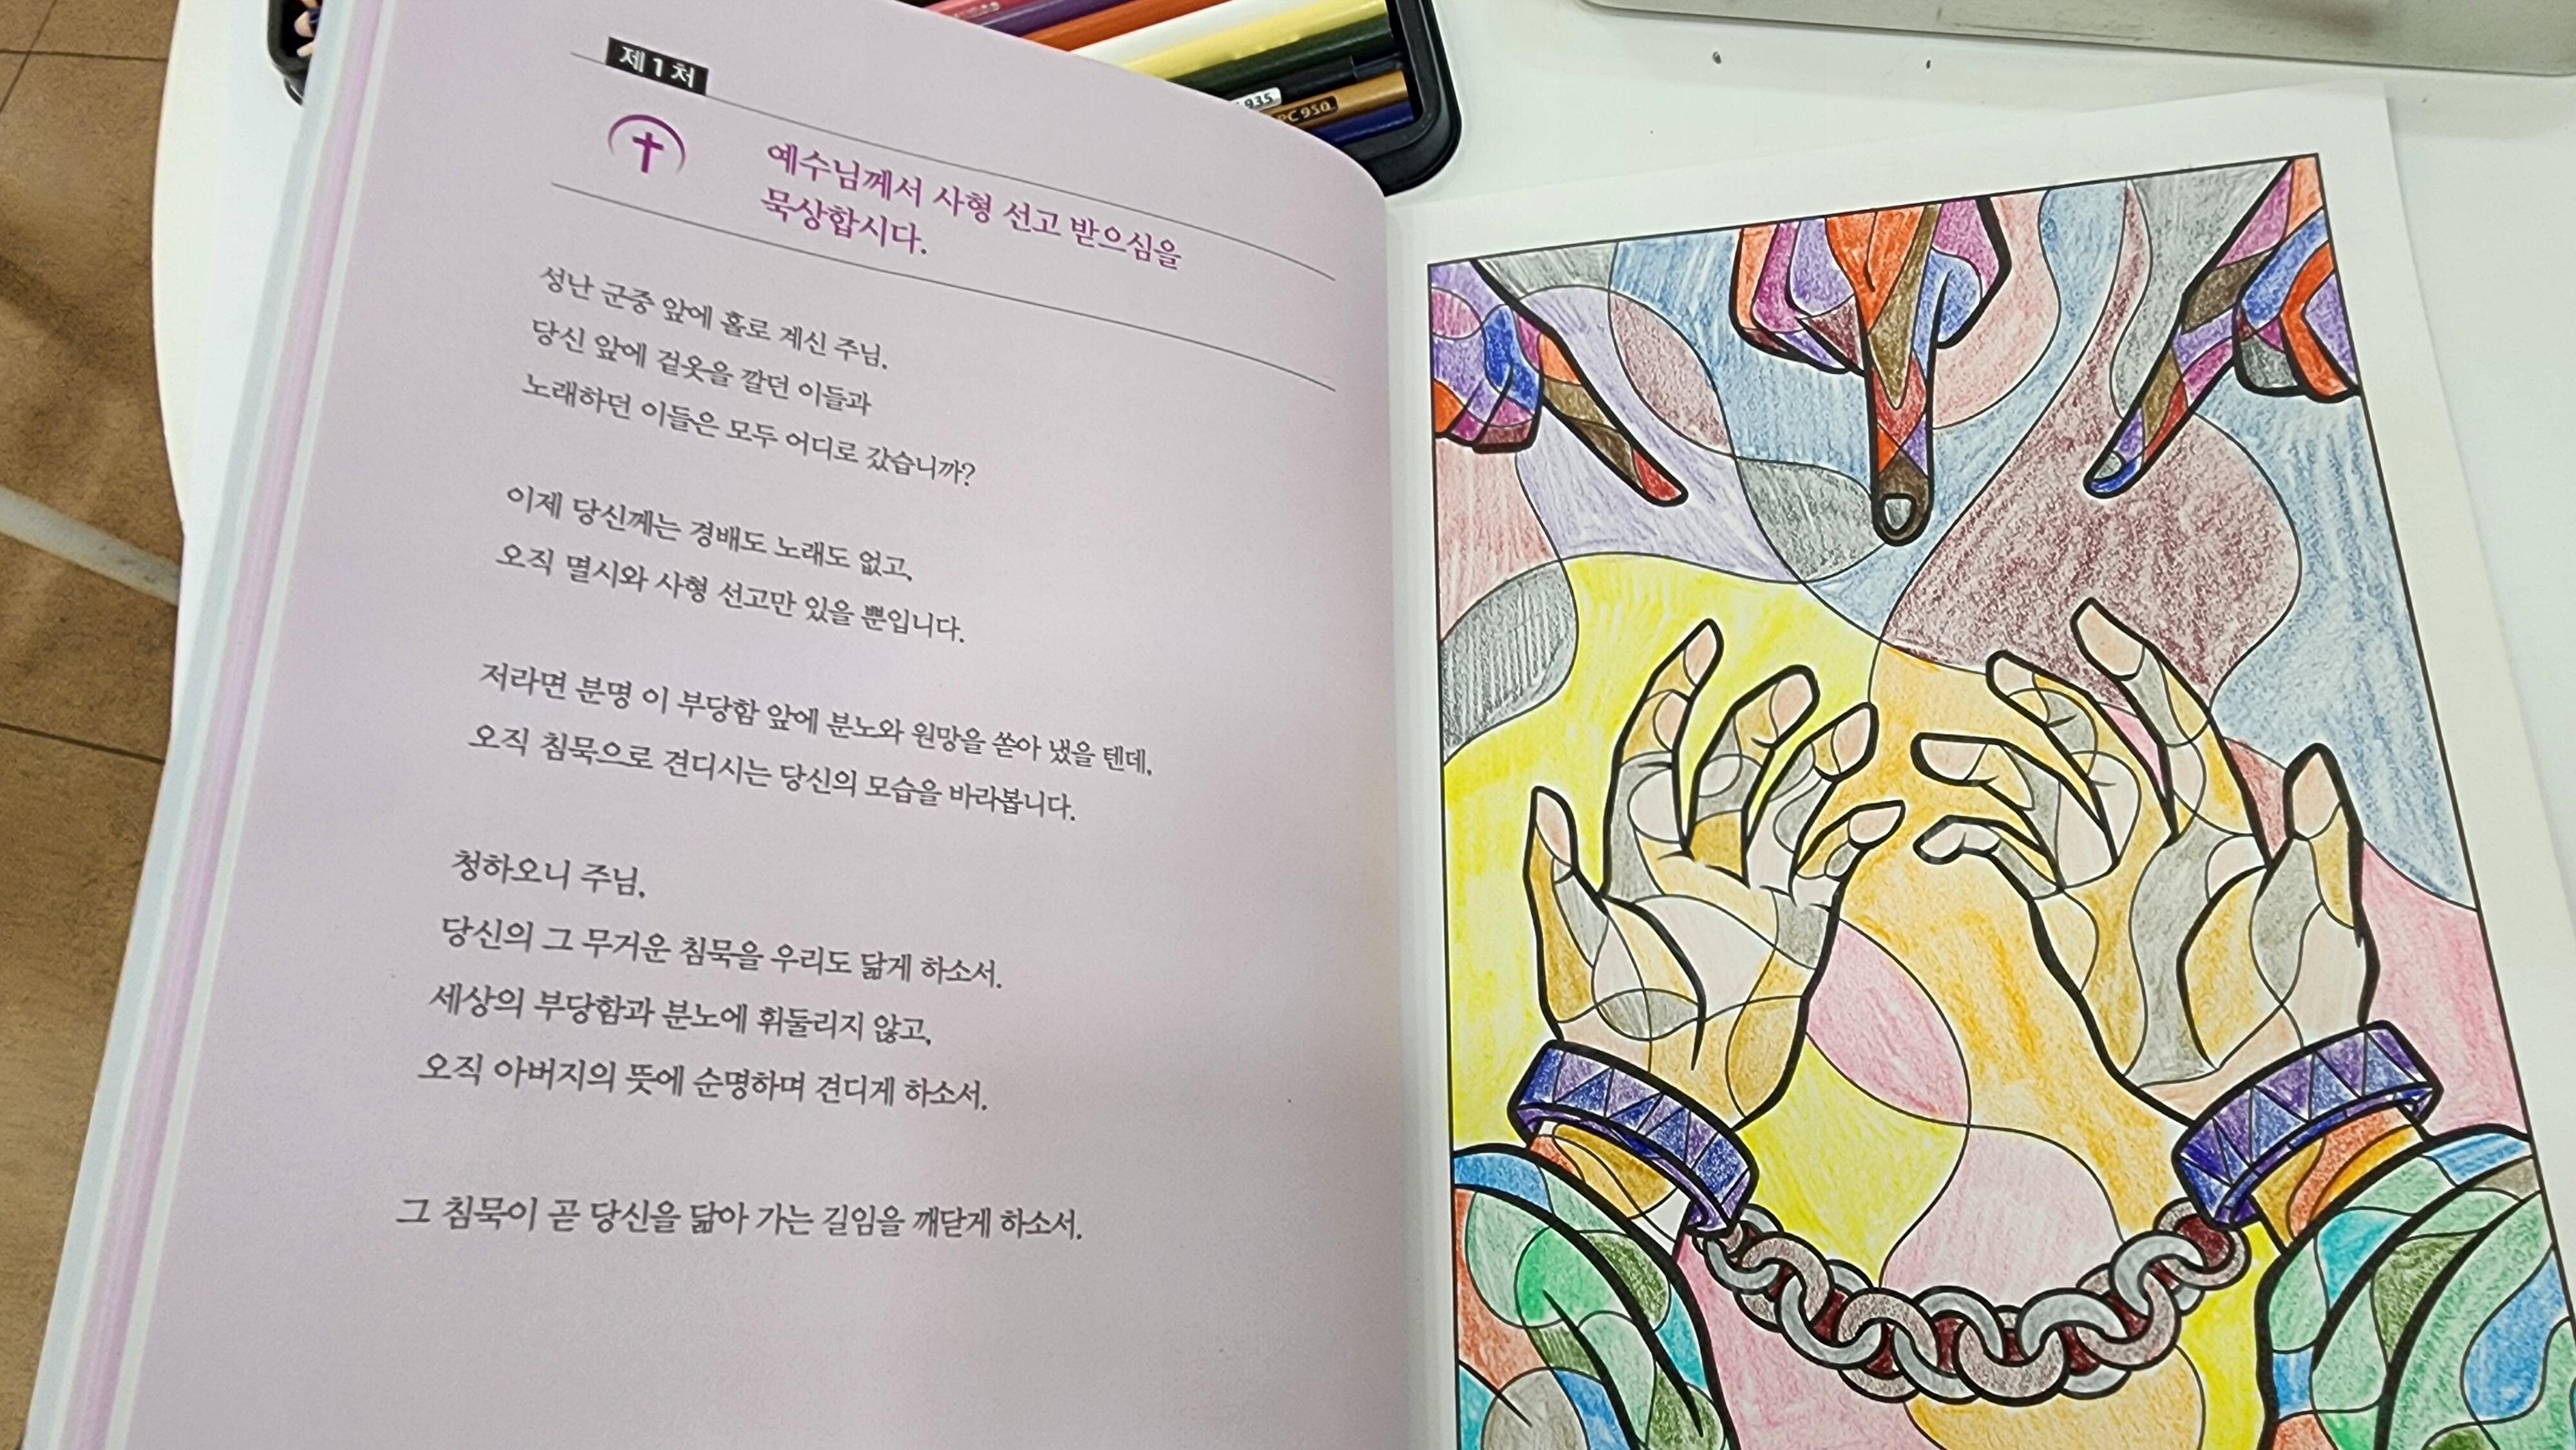 935
PC 950
제1처
예수님께서 사형 선고 받으심을
묵상합시다.
성난 군중 앞에 홀로 계신 주님,
당신 앞에 겉옷을 깔던 이들과
노래하던 이들은 모두 어디로 갔습니까?
이제 당신께는 경배도 노래도 없고,
오직 멸시와 사형 선고만 있을 뿐입니다.
저라면 분명 이 부당함 앞에 분노와 원망을 쏟아 냈을 텐데,
오직 침묵으로 견디시는 당신의 모습을 바라봅니다.
청하오니 주님,
당신의 그 무거운 침묵을 우리도 닮게 하소서.
세상의 부당함과 분노에 휘둘리지 않고,
오직 아버지의 뜻에 순명하며 견디게 하소서.
그 침묵이 곧 당신을 닮아 가는 길임을 깨닫게 하소서.